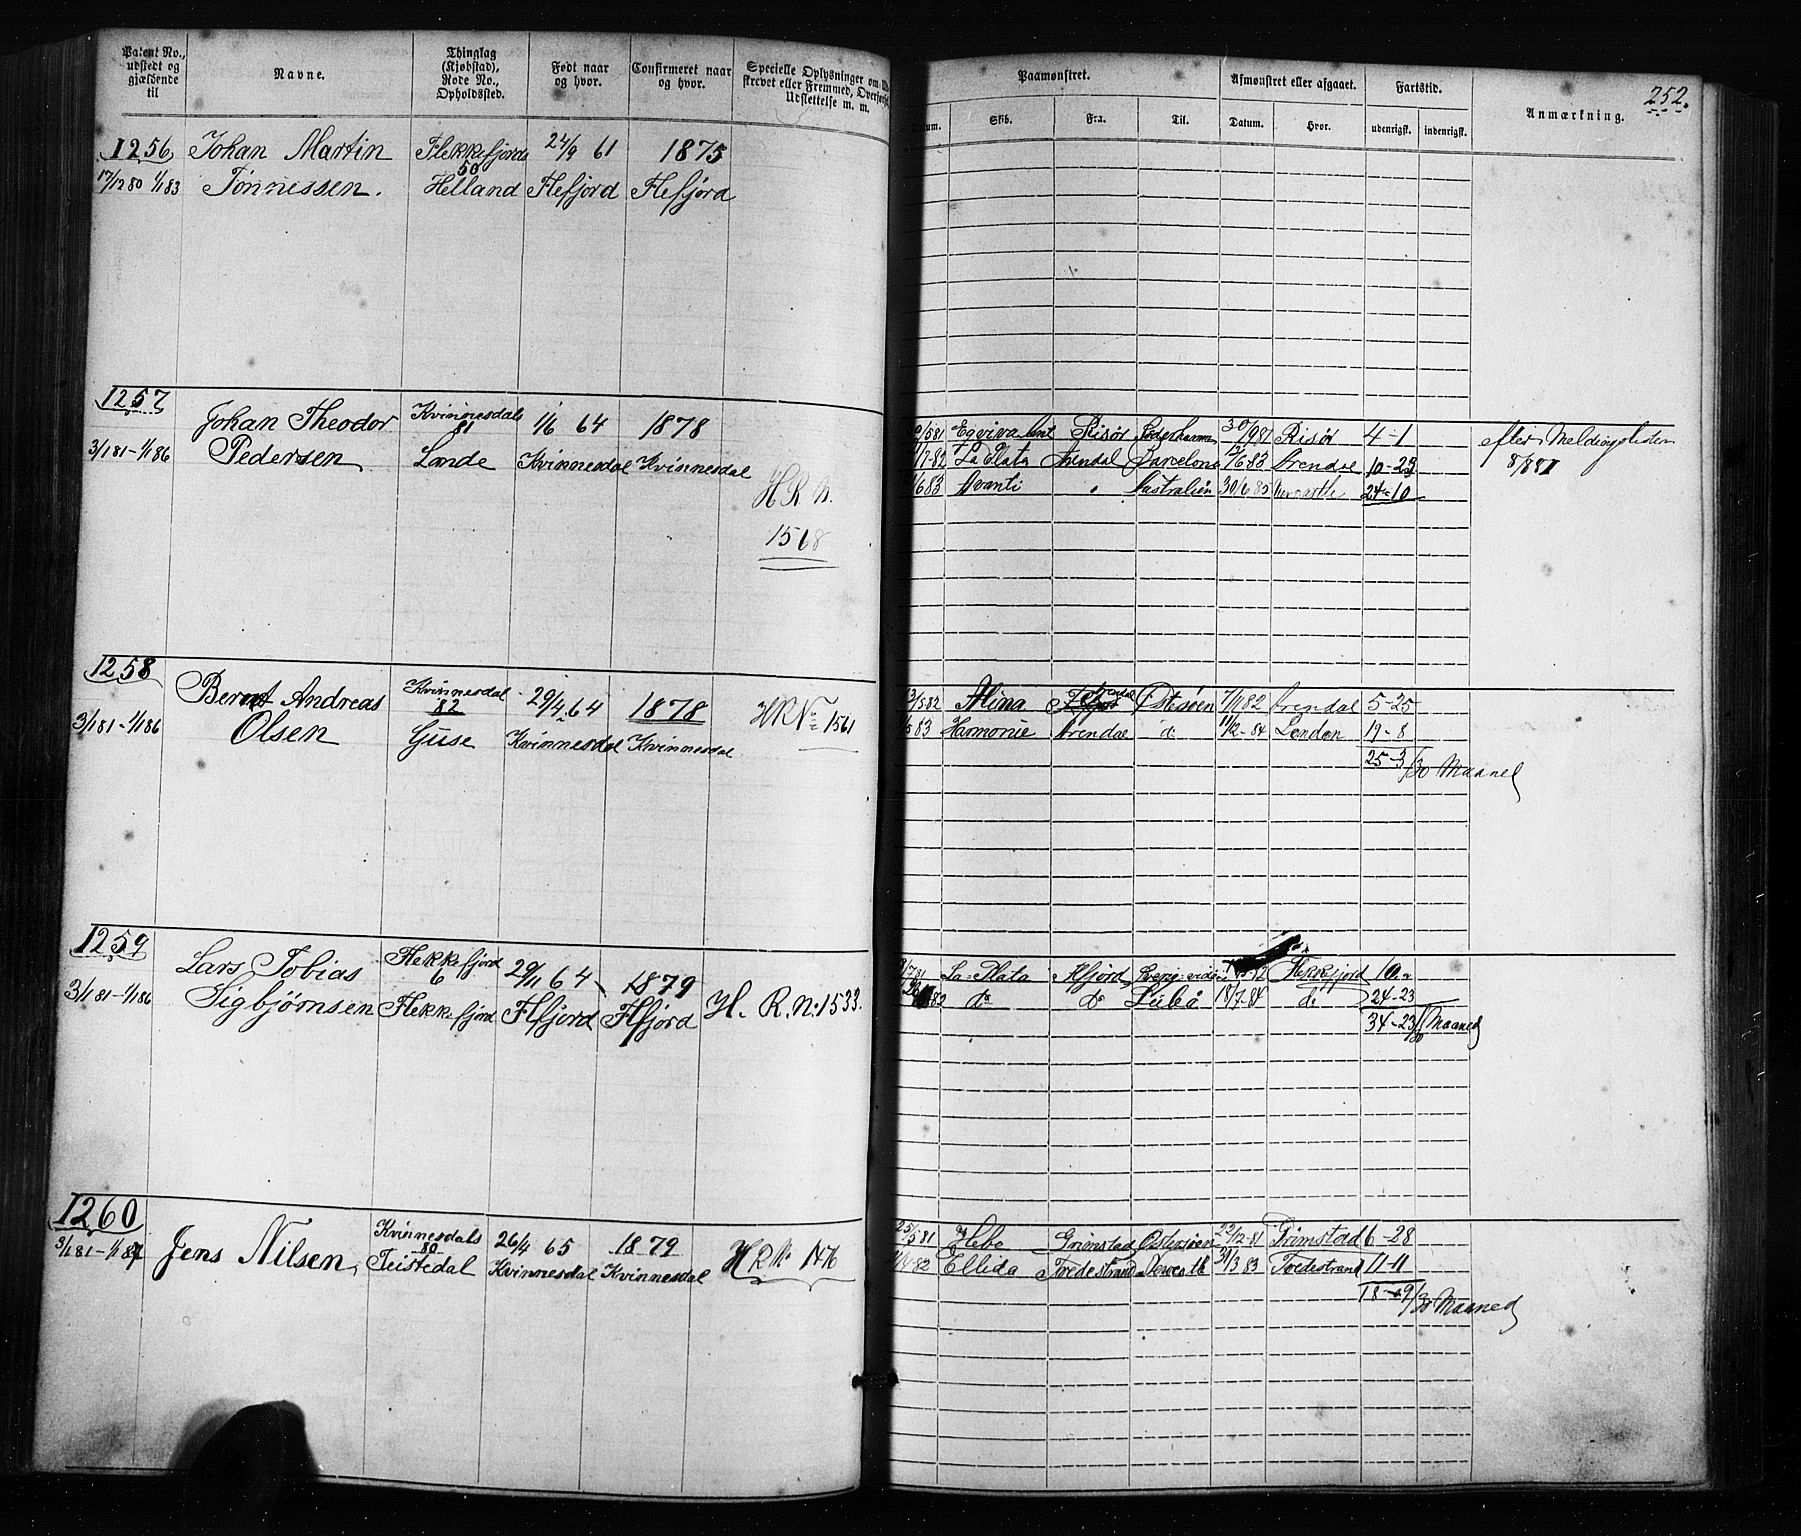 252.
Patent No., udstedt og gjældende til
Navne.
Thinglag (Kjøbstad), Rode No., Opholdssted.
Født naar og hvor.
Confirmeret naar og hvor.
Specielle Oplysninger om
skrevet eller Fremmed, Overførsel,
Udslettelse m. m.
Paamønstret.
Afmønstret eller afgaaet.
Fartstid.
Anmærkning.
Datum. Skib. Fra. Til. Datum. Hvor. udenrigsk. indenrigsk.
1256 Johan Martin Flekkefjords 24/9 61 1875
50
17/12 80 1/1 83 Tønnessen. Helland Flefjord Flefjord
1257 Johan Theodor Kvinnesdals 1/6 64 1878
81
3/1 81-1/1 86 Pedersen Lande Kvinnesdal Kvinnesdal
H R N.
1568
/5 81 Eqvivalent Risör Söderhamn 30/9 81 Risör 4-1 efter Meldingslisten
/7-82 La Plata Arendal Barcelona /6 83 Arendal 10-23 8/8 81
/6 83 Avanti " Australien 30/6 85 Newcastle 24-10
1258 Bernt Andreas Kvinnesdal 29/4 64 1878
82
3/1 81-1/1 86 Olsen Guse Kvinnesdal Kvinnesdal
HR No 1561
13/5 82 Alina Østesøen 7/11 82 Arendal 5-25
/5 83 Harmonie Arendal do 11/12-84 London 19-8
25-3/30 Maaned
1259 Lars Tobias Flekkefjord 29/11 64 1879
6
3/1 81-1/1 86 Sigbjørnsen Flekkefjord Flfjord Flfjord H. R. N. 1533.
/7 81 La-Plata Flfjord Flekkefjord 10
82 do do 18/7-84 do 24-23
34-23/30 Maaned
1260 Jens Nilsen Kvinnesdals 26/4 65 1879
80
3/1 81-1/1 87 Teistedal Kvinnesdal Kvinnesdal
H R N 1476
25/5 81 Hebe Grimstad Østersøen 22/12-81 Grimstad 6-28
/4 82 Ellida Tvedestrand 31/3 83 Tvedestrand 11-11
18-9/30 Maaned